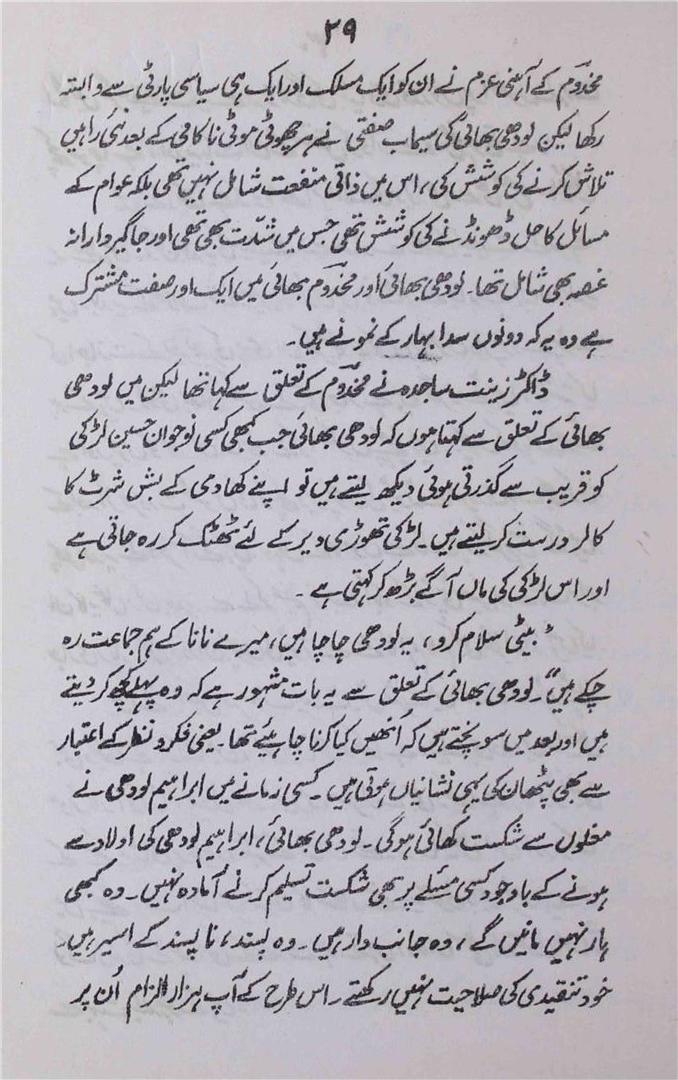 ۲۹
مخدوم کے آہنی عزم نے ان کو ایک مسلک اور ایک ہی سیاسی پارٹی سے وابستہ
رکھا لیکن لودھی بھائی کی سیماب صفتی نے ہر چھوٹی موٹی ناکامی کے بعد نئی راہیں
تلاش کرنے کی کوشش کی، اس میں ذاتی منفعت شامل نہیں تھی بلکہ عوام کے
مسائل کا حل ڈھونڈنے کی کوشش تھی جس میں شدّت بھی تھی اور جاگیردارانہ
غصہ بھی شامل تھا۔ لودھی بھائی اور مخدوم بھائی میں ایک اور صفت مشترک
ہے وہ یہ کہ دونوں سدا بہار کے نمونے ہیں۔
ڈاکٹر زینت ساجدہ نے مخدوم کے تعلق سے کہا تھا لیکن میں لودھی
بھائی کے تعلق سے کہتا ہوں کہ لودھی بھائی جب کبھی کسی نوجوان حسین لڑکی
کو قریب سے گذرتی ہوئی دیکھ لیتے ہیں تو اپنے کھادی کے بش شرٹ کا
کالر درست کر لیتے ہیں۔ لڑکی تھوڑی دیر کے لئے ٹھٹک کر رہ جاتی ہے
اور اس لڑکی کی ماں آگے بڑھ کر کہتی ہے۔
"بیٹی سلام کرو، یہ لودھی چاچا ہیں، میرے نانا کے ہم جماعت رہ
چکے ہیں"۔ لودھی بھائی کے تعلق سے یہ بات مشہور ہے کہ وہ پہلے کچھ کر دیتے
ہیں اور بعد میں سوچتے ہیں کہ اُنھیں کیا کرنا چاہیئے تھا۔ یعنی فکر و نظر کے اعتبار
سے بھی پٹھان کی یہی نشانیاں ہوتی ہیں۔ کسی زمانے میں ابراہیم لودھی نے
مغلوں سے شکست کھائی ہوگی۔ لودھی بھائی، ابراہیم لودھی کی اولاد سے
ہونے کے باوجود کسی مسئلے پر بھی شکست تسلیم کرنے آمادہ نہیں۔ وہ کبھی
ہار نہیں مانیں گے، وہ جانب دار ہیں۔ وہ پسند، ناپسند کے اسیر ہیں۔
خود تنقیدی کی صلاحیت نہیں رکھتے۔ اس طرح کے آپ ہزار الزام اُن پر